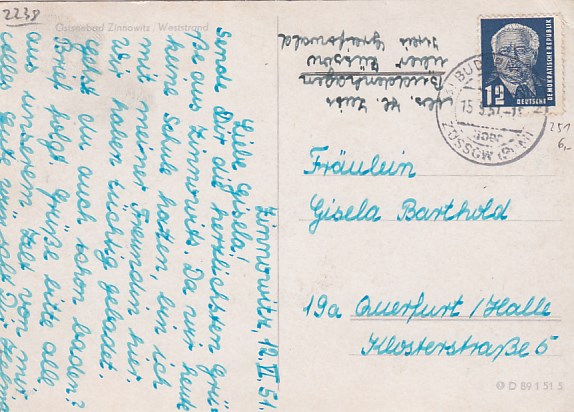 2238
Ostseebad Zinnowitz / Weststrand
Zinnowitz, 12. VI. 51.
Liebe Gisela!
Sende Dir die herzlichsten Grü-
ße aus Zinnowitz. Da wir heute
keine Schule hatten, bin ich
mit meiner Freundin hier.
Wir haben tüchtig gebadet.
Gehst du auch schon baden?
Brief folgt. Grüße bitte alle
aus unserem Zelt von mir.
Alles Gute wünscht Dir Helma
Kreis Greifswald
über Züssow
Buddenhagen
12
DEUTSCHE
DEMOKRATISCHE REPUBLIK
ZÜSSOW
251
6,-
Fräulein
Gisela Barthold
19a Querfurt /Halle
Klosterstraße 5
D 89 1 51 S